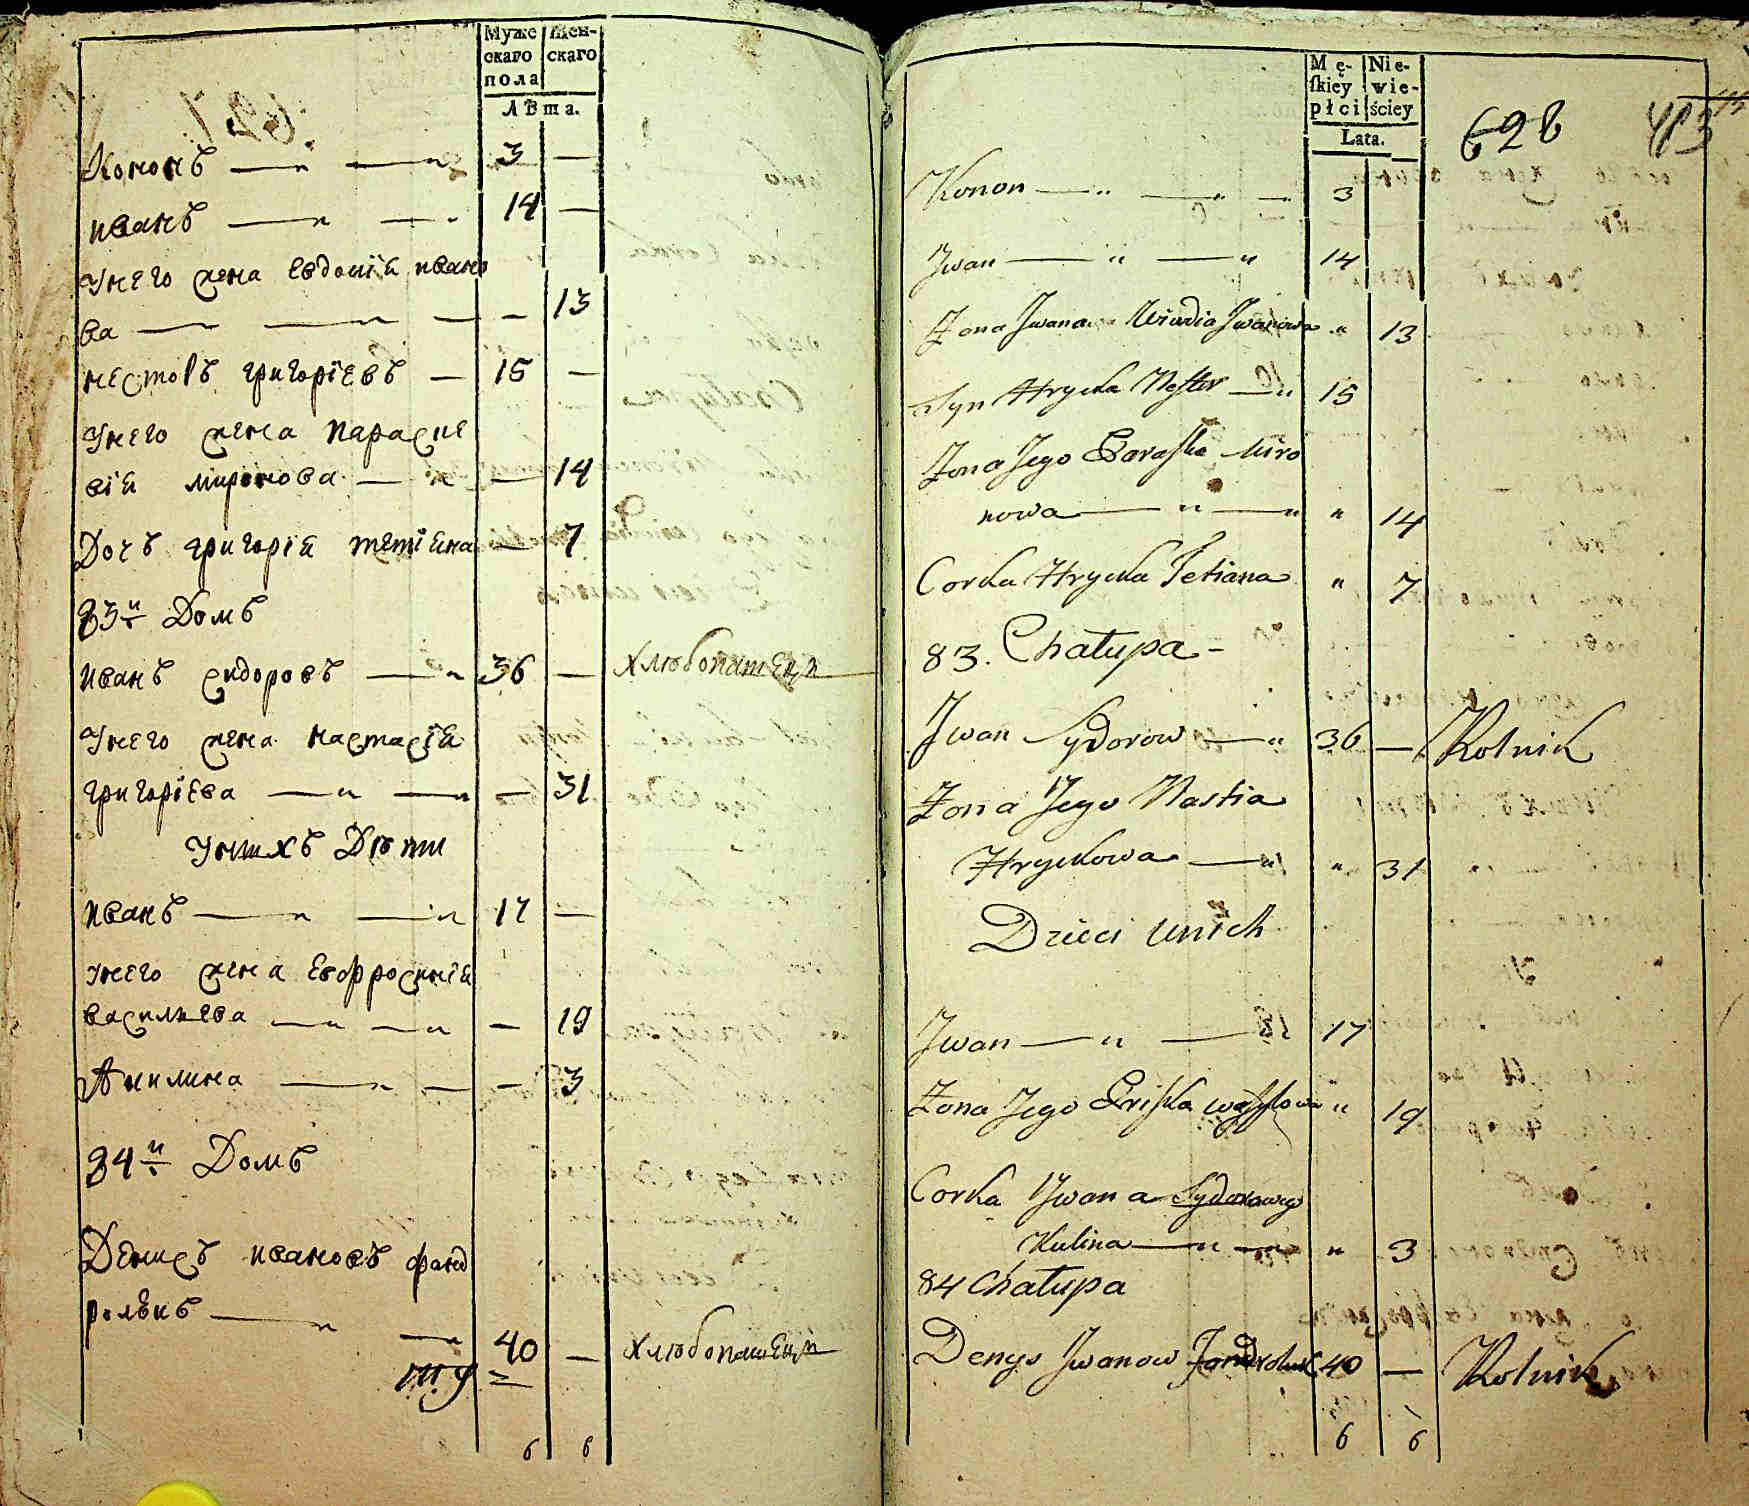 Муже
скаго
пола
Жен-
скаго
Лѣта.
Кононъ 3 —
иванъ 14 —
унего жена Евдокiя ивано
ва — 13
несторъ григорïевъ — 15 —
унего жена параске
вiя миронова — 14
Дочь григорiя тетiяна — 7
83й Домъ
иванъ сидоровъ 36 — хлѣбопашецъ
унего жена настасiя
григорïева — 31
унихъ Дѣти
иванъ 17 —
унего жена Евфросинiя
василиева — 19
Акилина — 3
84й Домъ
Денисъ ивановъ фанд
рольвкъ
40 — хлѣбопашецъ
6 6
Mę-
skiey
płci
Nie-
wie-
ściey
Lata.
628 413
Konon 3
Jwan 14
Żona Jwana Jwanowa " 13
Syn Hrycka Nester 15
Żona Jego Paraska Miro
nowa " 14
Corka Hrycka Tetiana " 7
83. Chałupa
Jwan Sydorow 36 — Rolnik
Żona Jego Nastia
Hryckowa " 31
Dzieci unich
Jwan 17
Żona Jego Priska Wasylowa " 19
Corka Jwana Sydorowego
Kulina " 3
84 Chałupa
Denys Jwanow Fandroluk 40 — Rolnik
6 6